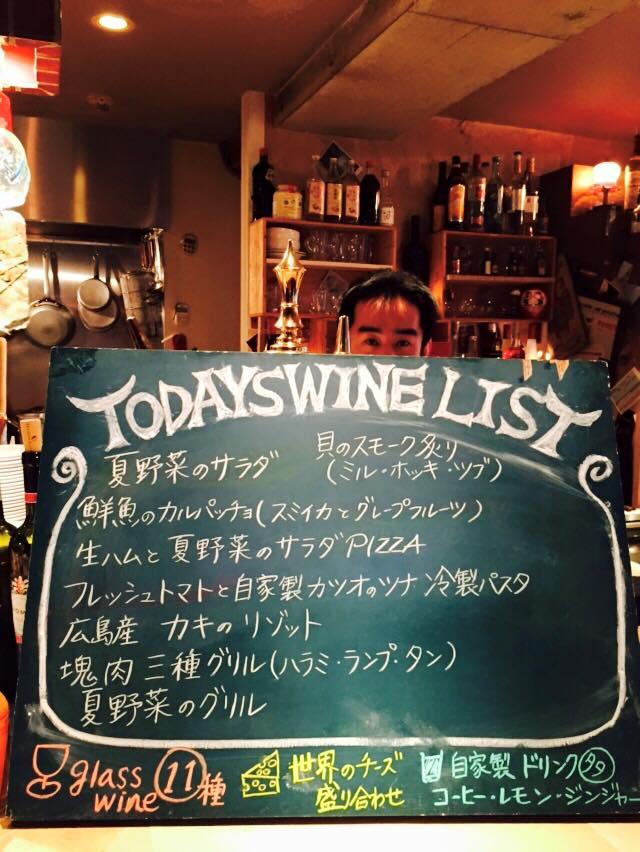 TODAYSWINE LIST
夏野菜のサラダ
貝のスモーク炙り
(ミル・ホッキ・ツブ)
鮮魚のカルパッチョ(スミイカとグレープフルーツ)
生ハムと夏野菜のサラダPIZZA
フレッシュトマトと自家製カツオのツナ 冷製パスタ
広島産 カキのリゾット
塊肉三種グリル(ハラミ・ランプ・タン)
夏野菜のグリル
glass wine 11種
世界のチーズ
盛り合わせ
自家製ドリンク
コーヒー・レモン・ジンジャー